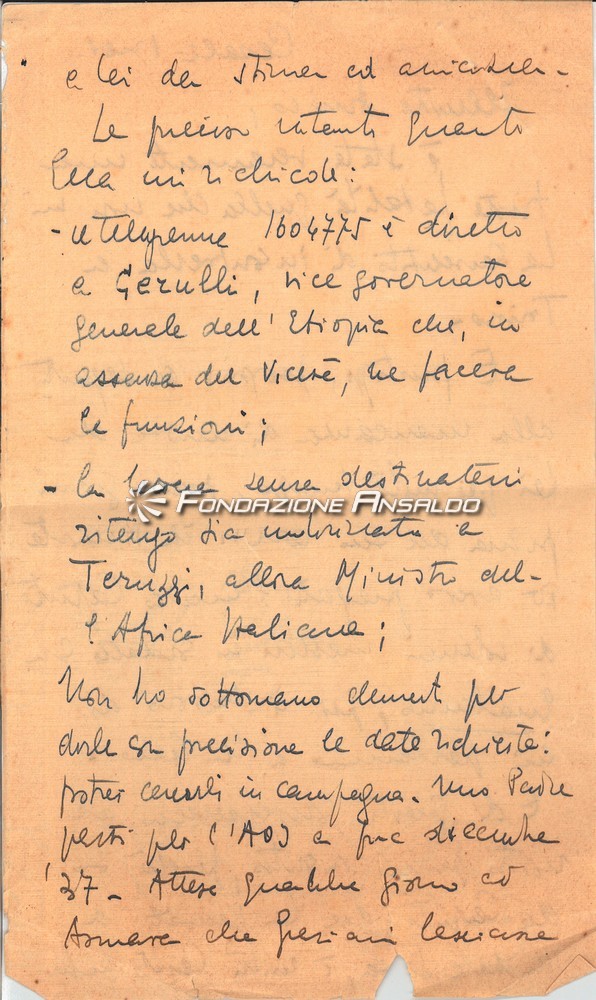 a lei da stima ed amicizia -
Le preciso intanto quanto
Ella mi richiede:
- il telegramma 1604775 è diretto
a Cerulli, vice governatore
generale dell'Etiopia che, in
assenza del Viceré, ne faceva
le funzioni;
- la bozza senza destinatari
FONDAZIONE ANSALDO
ritengo sia indirizzata a
Teruzzi, allora Ministro del-
l'Africa Italiana;
Non ho sottomano elementi per
darle con precisione le date richieste:
potrei cercarli in campagna. Mio Padre
partì per l'AOI a fine dicembre
'37 - Attese qualche giorno ad
Asmara che Graziani lasciasse